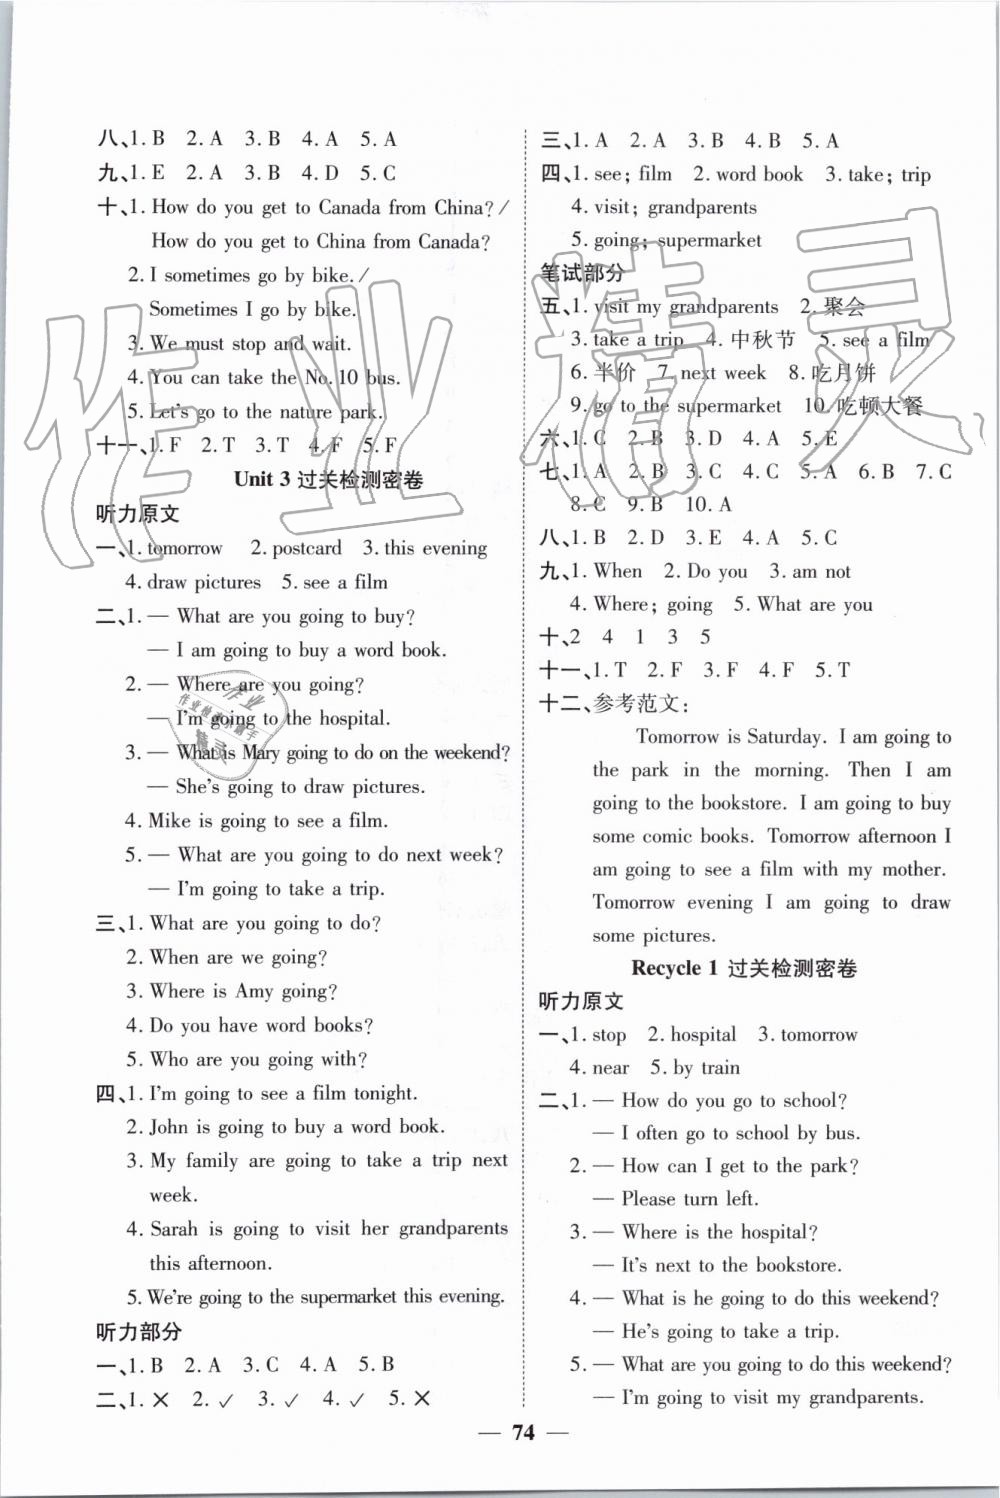 八、1. B 2. A 3. B 4. A 5. A
九、1. E 2. A 3. B 4. D 5. C
十、1. How do you get to Canada from China? /
How do you get to China from Canada?
2. I sometimes go by bike. /
Sometimes I go by bike.
3. We must stop and wait.
4. You can take the No. 10 bus.
5. Let's go to the nature park.
十一、1. F 2. T 3. T 4. F 5. F
Unit 3 过关检测密卷
听力原文
一、1. tomorrow 2. postcard 3. this evening
4. draw pictures 5. see a film
二、1. — What are you going to buy?
— I am going to buy a word book.
2. — Where are you going?
— I'm going to the hospital.
3. — What is Mary going to do on the weekend?
— She's going to draw pictures.
4. Mike is going to see a film.
5. — What are you going to do next week?
— I'm going to take a trip.
三、1. What are you going to do?
2. When are we going?
3. Where is Amy going?
4. Do you have word books?
5. Who are you going with?
四、1. I'm going to see a film tonight.
2. John is going to buy a word book.
3. My family are going to take a trip next
week.
4. Sarah is going to visit her grandparents
this afternoon.
5. We're going to the supermarket this evening.
听力部分
一、1. B 2. A 3. C 4. A 5. B
二、1. ✕ 2. ✓ 3. ✓ 4. ✓ 5. ✕
三、1. A 2. A 3. B 4. B 5. A
四、1. see; film 2. word book 3. take; trip
4. visit; grandparents
5. going; supermarket
笔试部分
五、1. visit my grandparents 2. 聚会
3. take a trip 4. 中秋节 5. see a film
6. 半价 7. next week 8. 吃月饼
9. go to the supermarket 10. 吃顿大餐
六、1. C 2. B 3. D 4. A 5. E
七、1. A 2. B 3. C 4. C 5. A 6. B 7. C
8. C 9. B 10. A
八、1. B 2. D 3. E 4. A 5. C
九、1. When 2. Do you 3. am not
4. Where; going 5. What are you
十、2 4 1 3 5
十一、1. T 2. F 3. F 4. F 5. T
十二、参考范文:
Tomorrow is Saturday. I am going to
the park in the morning. Then I am
going to the bookstore. I am going to buy
some comic books. Tomorrow afternoon I
am going to see a film with my mother.
Tomorrow evening I am going to draw
some pictures.
Recycle 1 过关检测密卷
听力原文
一、1. stop 2. hospital 3. tomorrow
4. near 5. by train
二、1. — How do you go to school?
— I often go to school by bus.
2. — How can I get to the park?
— Please turn left.
3. — Where is the hospital?
— It's next to the bookstore.
4. — What is he going to do this weekend?
— He's going to take a trip.
5. — What are you going to do this weekend?
— I'm going to visit my grandparents.
— 74 —
作业精灵